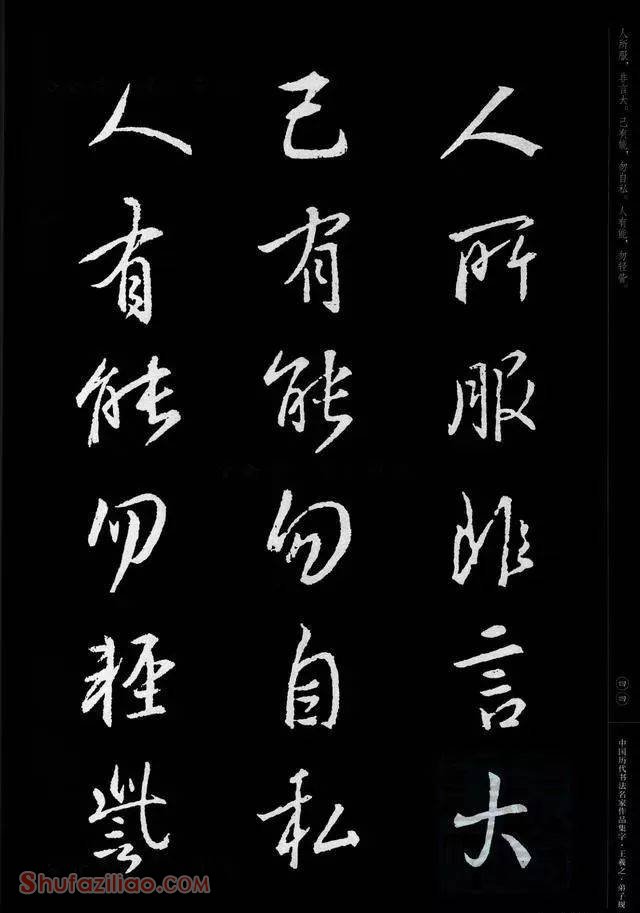 人所服，非言大。己有能，勿自私。人有能，勿轻訾。
人所服非言大
己有能勿自私
人有能勿輕訾
四四
中国历代书法名家作品集字·王羲之·弟子规
Shufaziliao.com